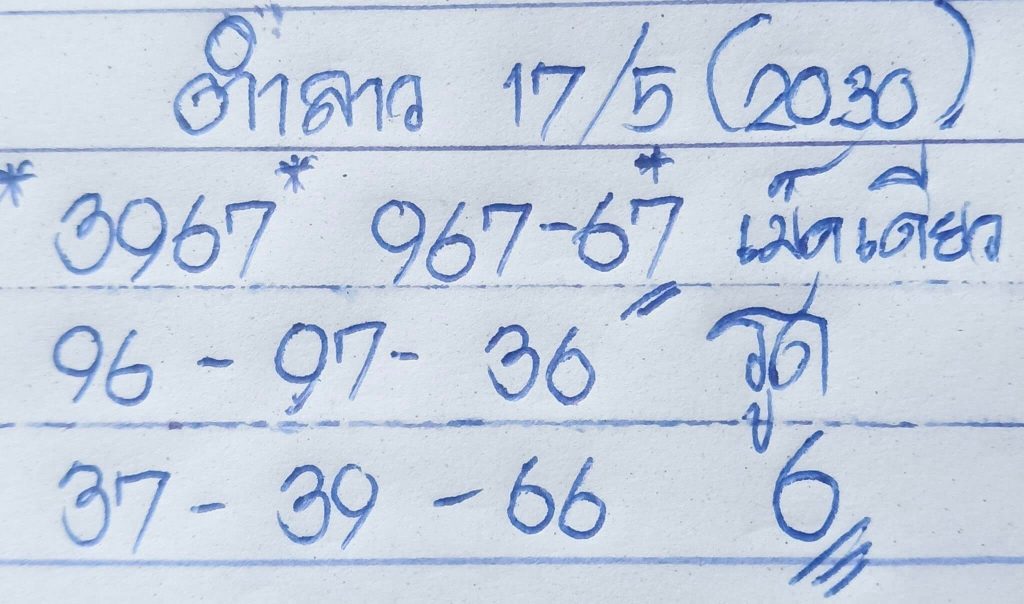 ฮำลาว 17/5 (2030)
* 3967* 967-67* เม็ดเดียว
96 - 97 - 36 รูด
37 - 39 - 66 6